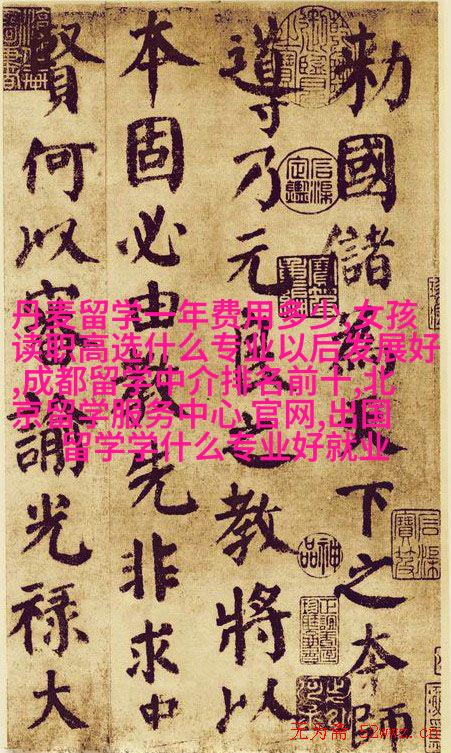 勅國儲爲天下之本師
導乃元良之教將以
本固必由教先非求中
賢何以審諭光禄大
丹麦留学一年费用多少,女孩
读职高选什么专业以后发展好
,成都留学中介排名前十,北
京留学服务中心官网,出国
留学学什么专业好就业
神品
无为斋 52wws.cn